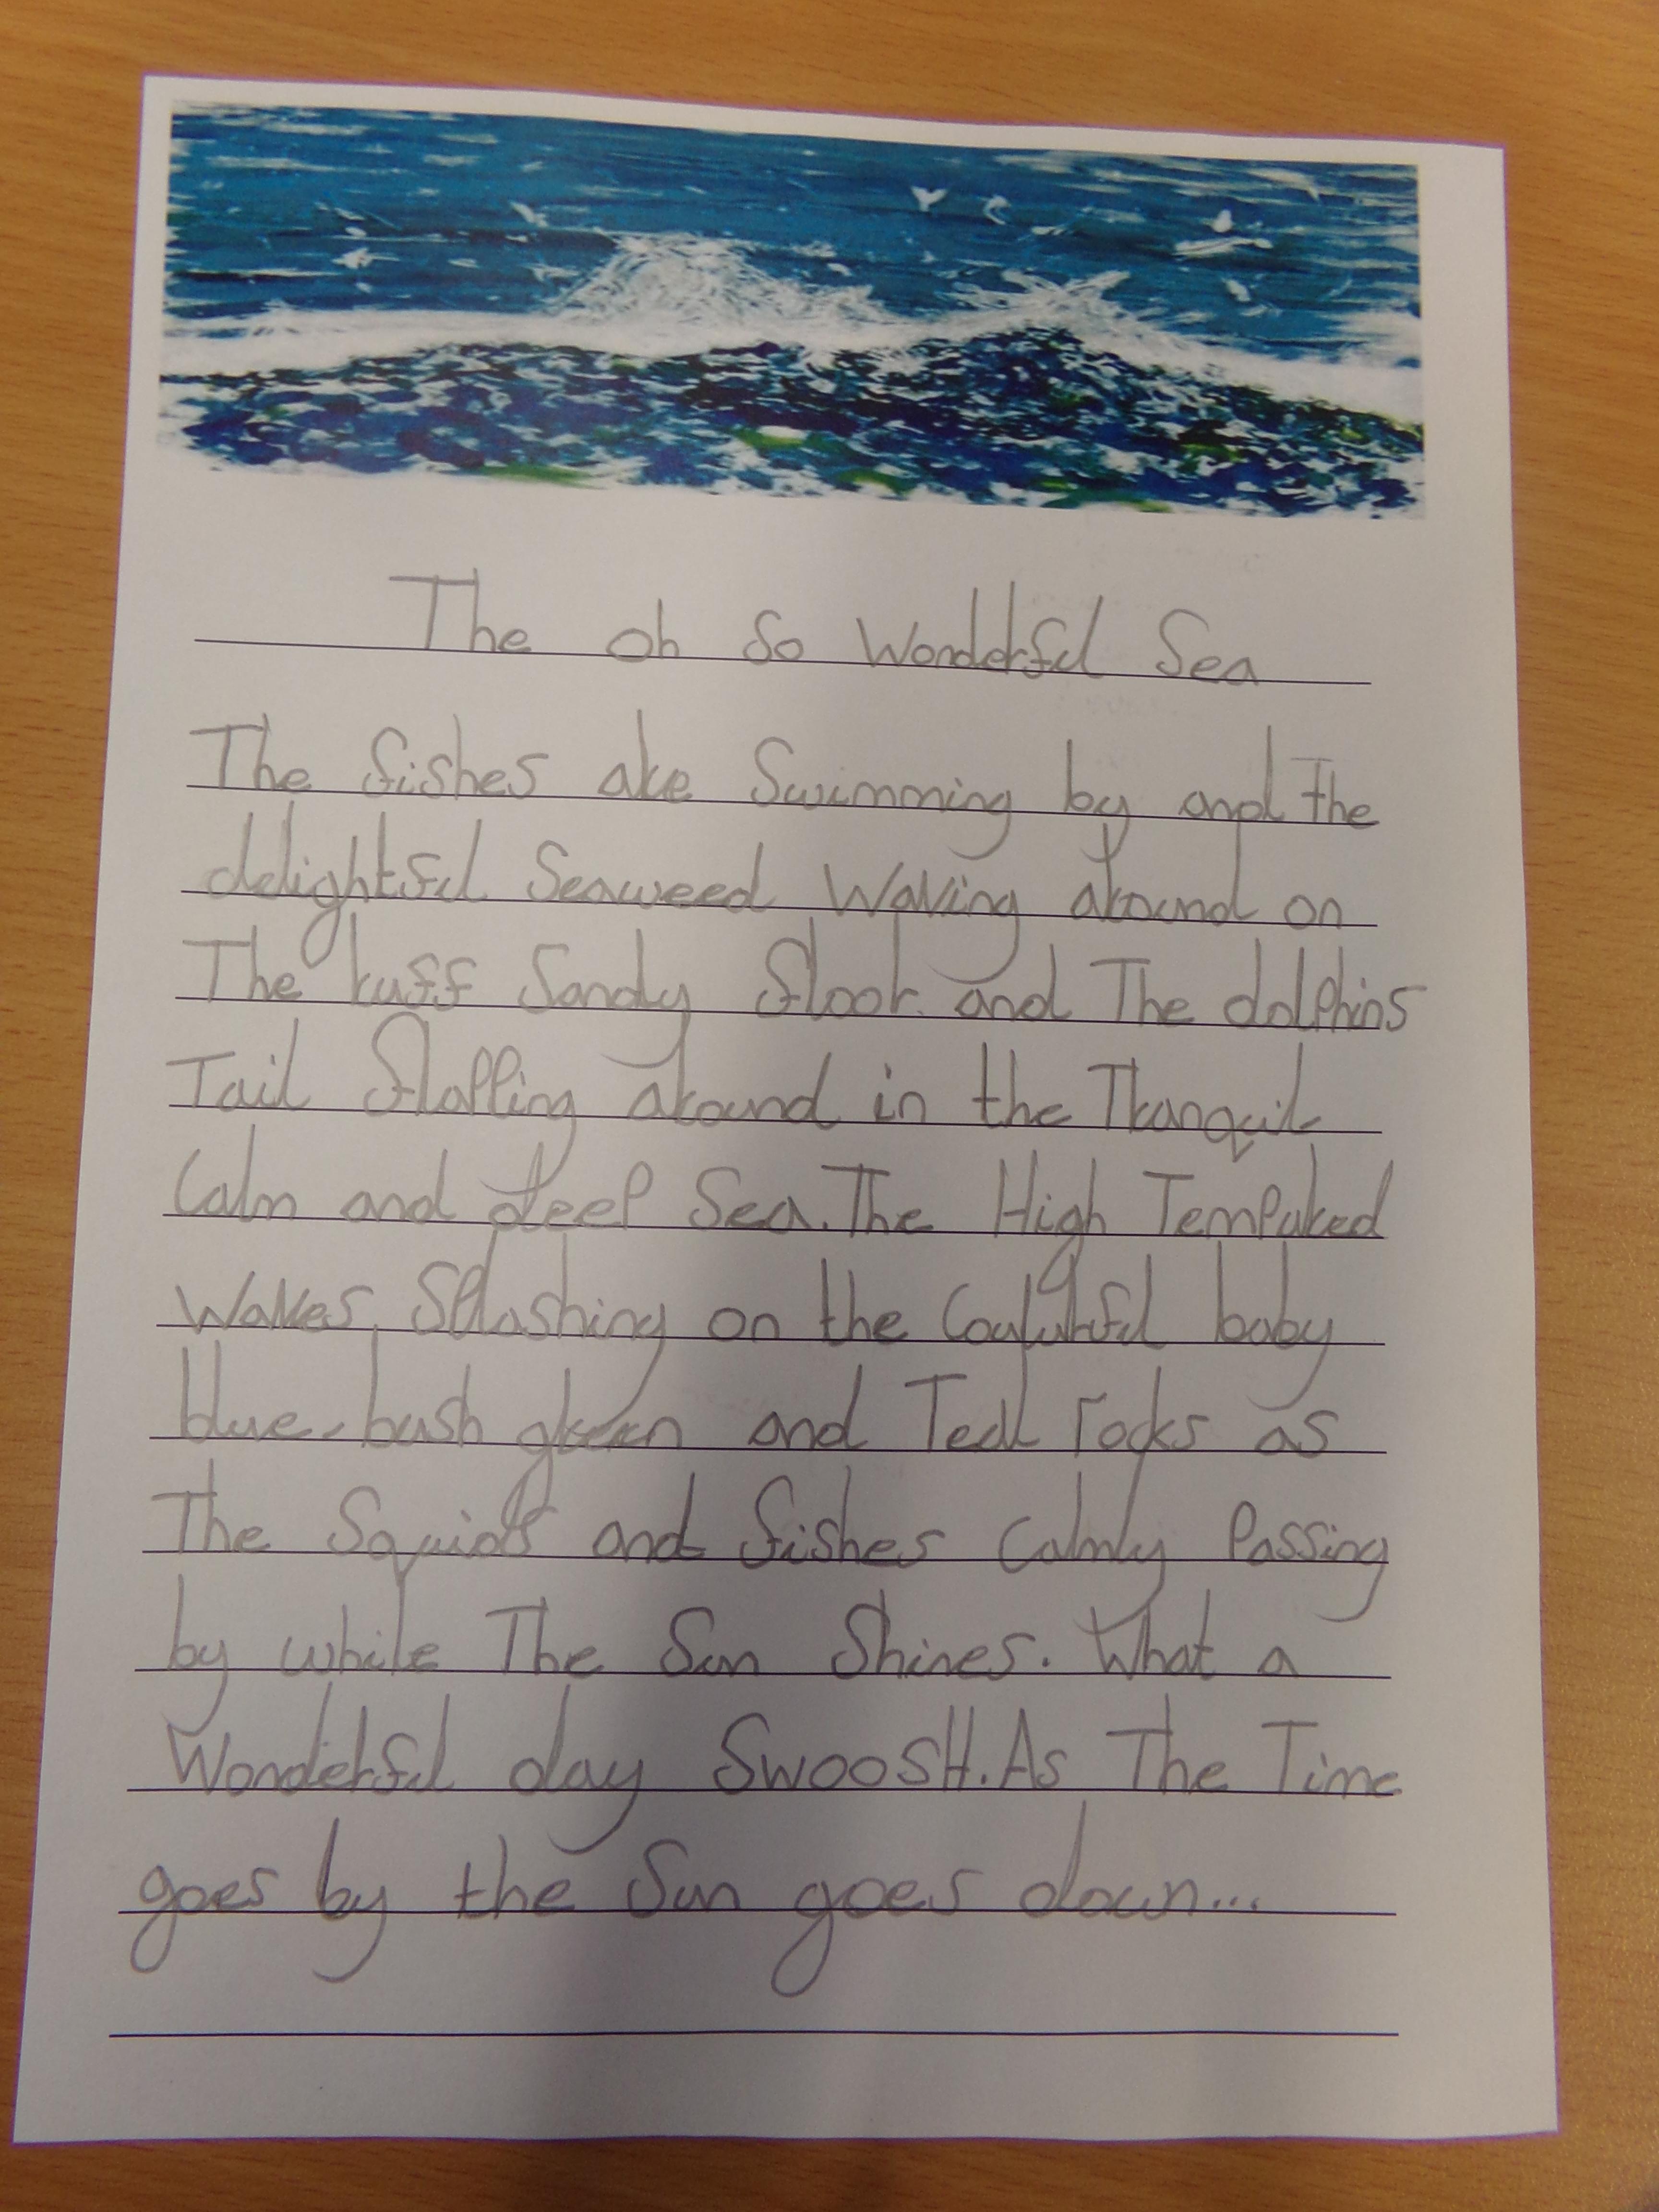 The oh So Wonderful Sea
The fishes are Swimming by and the
delightful Seaweed Waving around on
The ruff Sandy floor. and The dolphins
Tail flapping around in the Tranquil
Calm and deep Sea. The High Tempured
Waves, Splashing on the baby
blue, bush green and Teal rocks as
The Squids and fishes Calmly Passing
by while The Sun Shines. What a
Wonderful day SWOOSH. As The Time
goes by the Sun goes down...